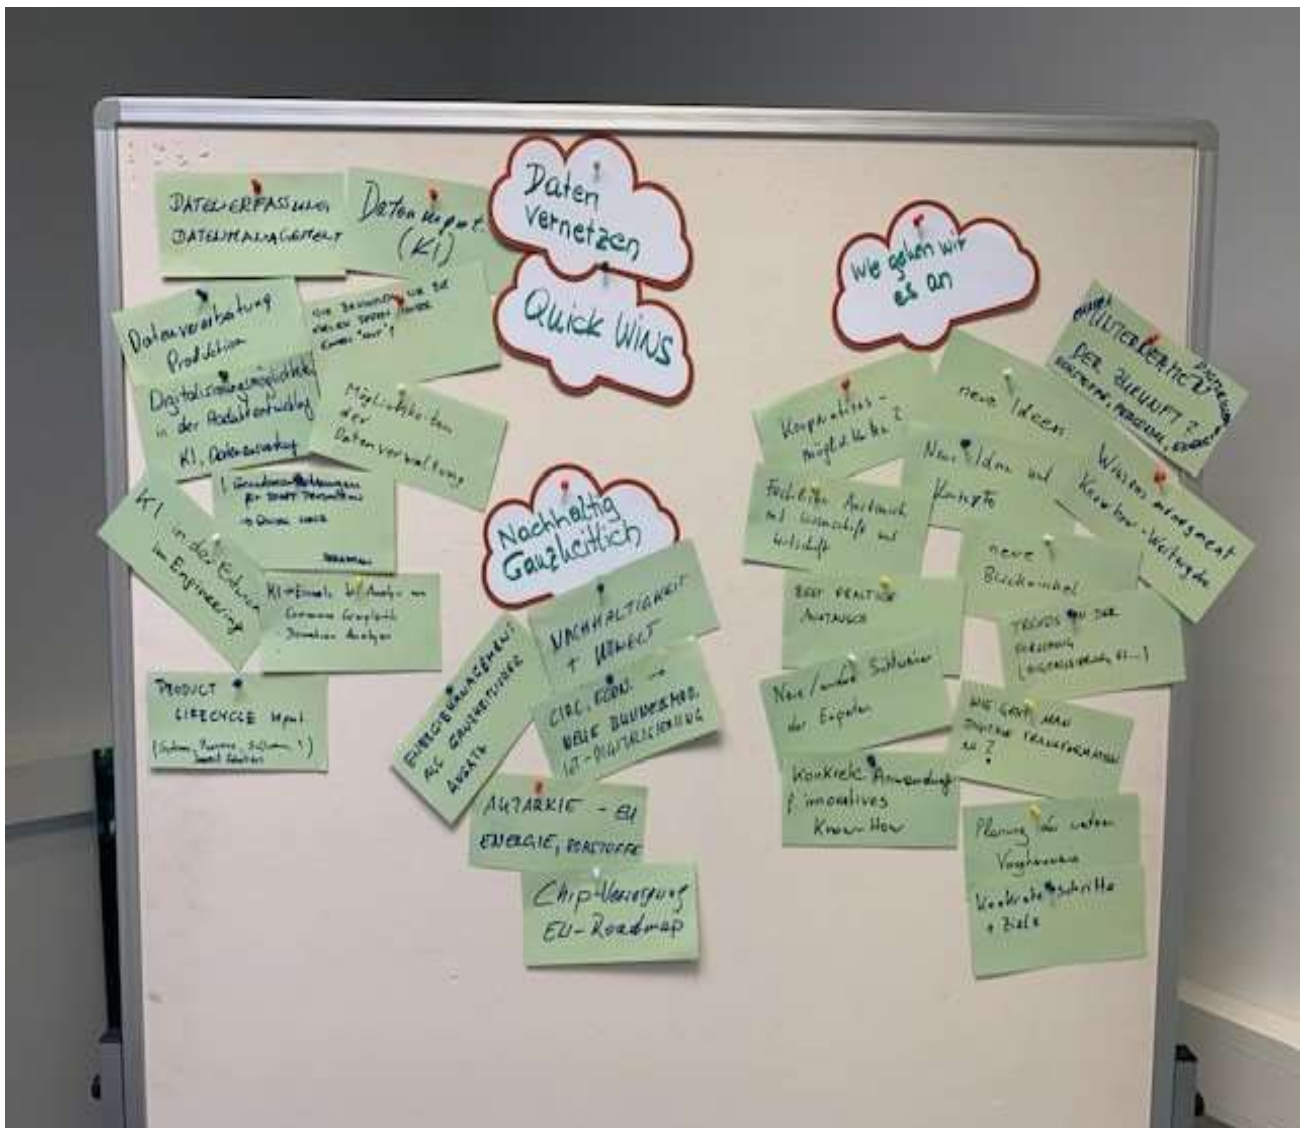 Daten
vernetzen
Quick WINS
DATENERFASSUNG
DATENMANAGEMENT
Datenmgmt.
(KI)
Datenverarbeitung
Produktion
Digitalisierungsmöglichk.
in der Produktentwicklung
KI,
Möglichkeiten
der
Datenverwaltung
KI in der
im Engineering
KI-Einsatz bei Analyse von
PRODUCT
LIFECYCLE Mgmt.
Nachhaltig
Ganzheitlich
NACHHALTIGKEIT
+ UMWELT
ENERGIEMANAGEMENT
ALS GANZHEITLICHER
ANSATZ
CIRC. ECON. →
NEUE
IoT-DIGITALISIERUNG
AUTARKIE - EU
ENERGIE, ROHSTOFFE
Chip-Versorgung
EU-Roadmap
Wie gehen wir
es an
Kooperations-
möglichkeiten?
neue Ideen
UNTERNEHMEN
DER ZUKUNFT?
Fachlicher Austausch
mit Wissenschaft und
Wirtschaft
Neue Ideen und
Konzepte
Wissensmanagment
Know how - Weitergabe
neue
Blickwinkel
BEST PRACTICE
AUSTAUSCH
TRENDS IN DER
FORSCHUNG
Neue / andere Sichtweisen
der Experten
WIE GEHT MAN
DIGITALE TRANSFORMATION
AN?
Konkrete Anwendung
innovatives
Know-How
Planung der weiteren
Vorgehensweise
Konkrete Schritte
+ Ziele